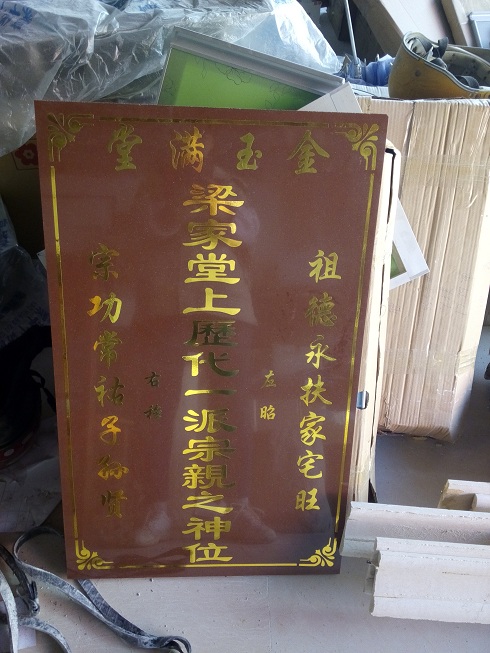 金玉满堂
祖德永扶家宅旺
左昭
梁家堂上歷代一派宗親之神位
右穆
宗功常祐子孙贤